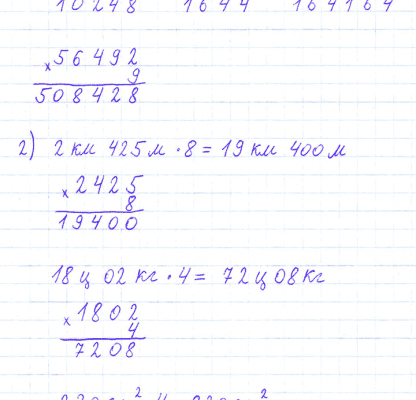 10248 1644 164164
× 56492
9
508428
2) 2 км 425 м · 8 = 19 км 400 м
× 2425
8
19400
18 ц 02 кг · 4 = 72 ц 08 кг
× 1802
4
7208